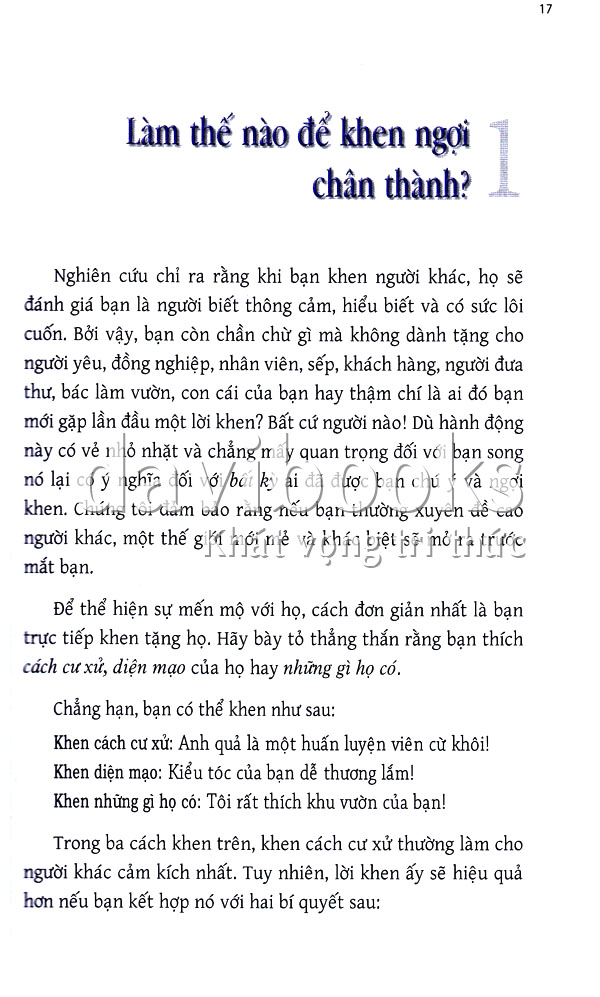 17
Làm thế nào để khen ngợi
chân thành?
1
Nghiên cứu chỉ ra rằng khi bạn khen người khác, họ sẽ
đánh giá bạn là người biết thông cảm, hiểu biết và có sức lôi
cuốn. Bởi vậy, bạn còn chần chừ gì mà không dành tặng cho
người yêu, đồng nghiệp, nhân viên, sếp, khách hàng, người đưa
thư, bác làm vườn, con cái của bạn hay thậm chí là ai đó bạn
mới gặp lần đầu một lời khen? Bất cứ người nào! Dù hành động
này có vẻ nhỏ nhặt và chẳng mấy quan trọng đối với bạn song
nó lại có ý nghĩa đối với bất kỳ ai đã được bạn chú ý và ngợi
khen. Chúng tôi đảm bảo rằng nếu bạn thường xuyên đề cao
người khác, một thế giới mới mẻ và khác biệt sẽ mở ra trước
mắt bạn.
davibooks
Khát vọng tri thức
Để thể hiện sự mến mộ với họ, cách đơn giản nhất là bạn
trực tiếp khen tặng họ. Hãy bày tỏ thẳng thắn rằng bạn thích
cách cư xử, diện mạo của họ hay những gì họ có.
Chẳng hạn, bạn có thể khen như sau:
Khen cách cư xử: Anh quả là một huấn luyện viên cừ khôi!
Khen diện mạo: Kiểu tóc của bạn dễ thương lắm!
Khen những gì họ có: Tôi rất thích khu vườn của bạn!
Trong ba cách khen trên, khen cách cư xử thường làm cho
người khác cảm kích nhất. Tuy nhiên, lời khen ấy sẽ hiệu quả
hơn nếu bạn kết hợp nó với hai bí quyết sau: